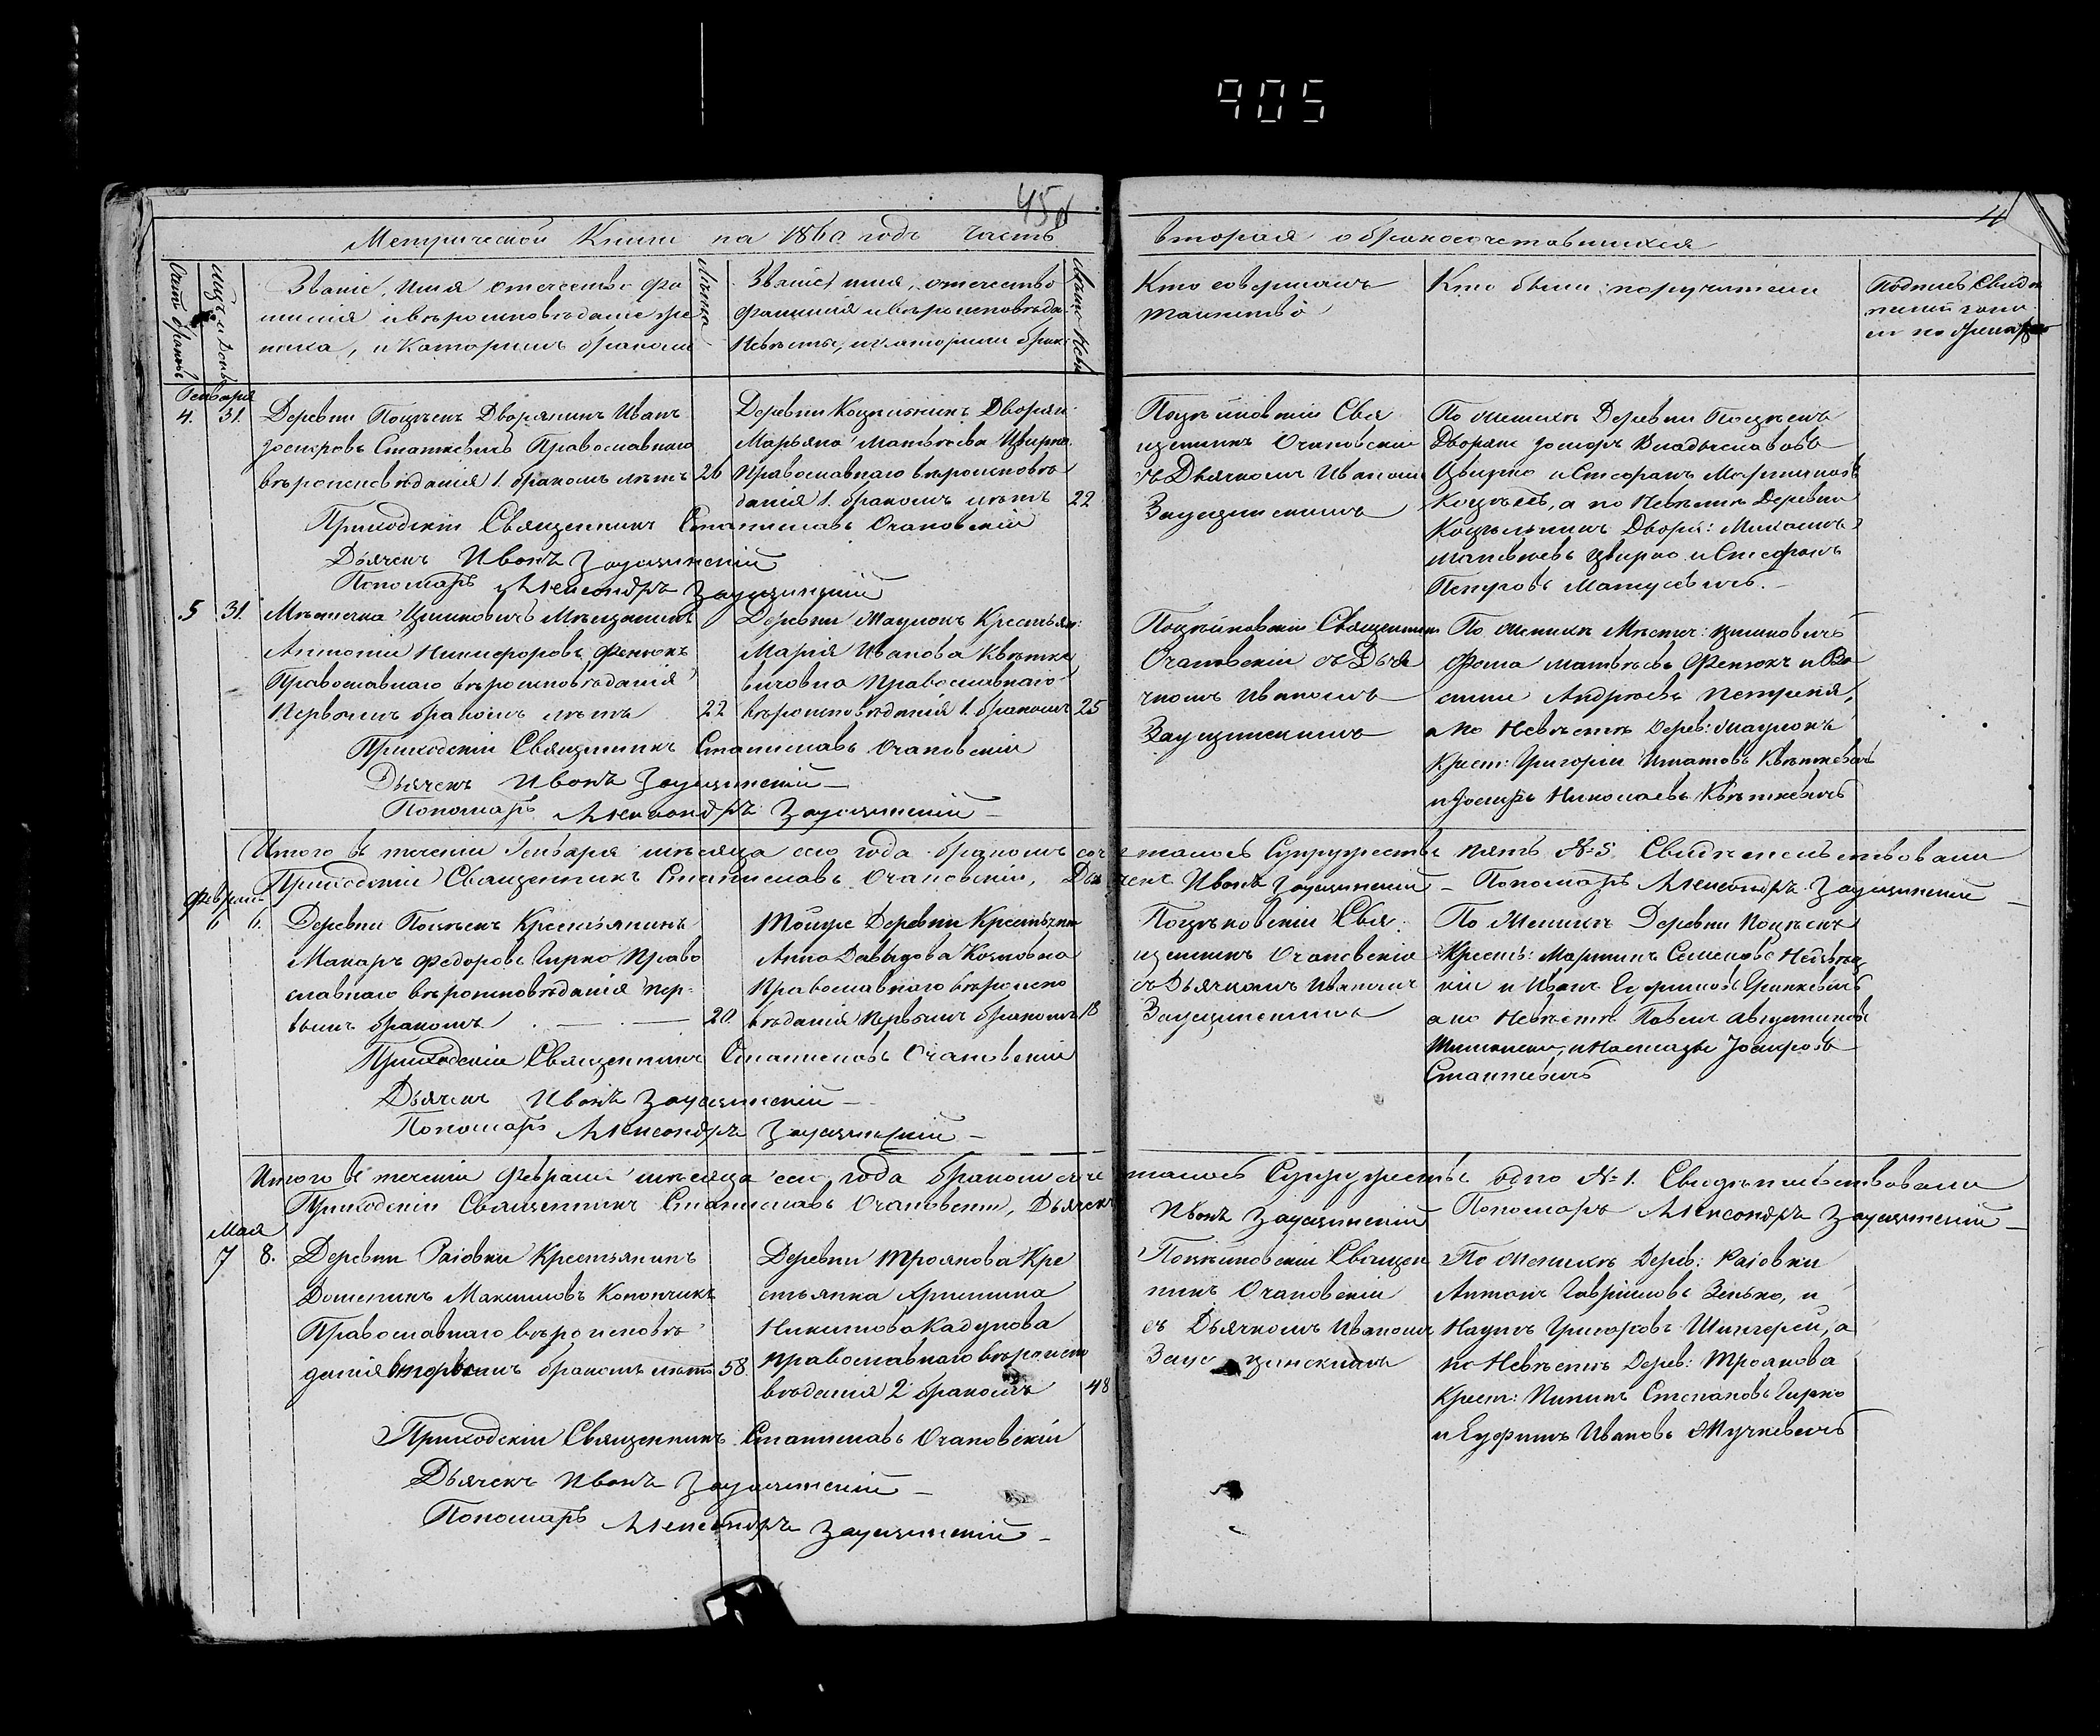 905
45
Метрической Книги на 1860 годъ часть
вторая о бракосочетавшихся
Счетъ браковъ
Мцъ и День
Званіе, имя отечество фа
милія и вѣроисповѣданіе же
ниха, и которымъ бракомъ
Лѣта
Званіе, имя, отечество
фамилія и вѣроисповѣда.
Невѣсты, и которымъ брак:
Кто совершалъ
таинство
Кто были поручители
Генваря
4. 31.
Деревни Поцѣекъ Дворянинъ Иванъ
Іосифовъ Станкевичъ Православнаго
вѣроисповѣданія 1. бракомъ лѣтъ 26
Дворян:
Марьяна Матвѣева Цвирко
Православнаго вѣроисповѣ
данія 1. бракомъ лѣтъ 22
Поцѣйковскій Свя
щенникъ Очановскій
съ Дьячкомъ Иваномъ
Заусцинскимъ
По Женихѣ Деревни Поцѣекъ
Дворяне Іосифъ Владиславовъ
Цвирко и Стефанъ Мартиновъ
а по Невѣстѣ Деревни
Дворя: Михаилъ
Матвѣевъ Цвирко и Стефанъ
Петровъ Матусевичъ.
Приходскій Священникъ Станиславъ Очановскій
Дьячекъ Иванъ Заусцинскій
Пономарь Александръ Заусцинскій
5 31.
Мѣстечка Цимковичъ Мѣщанинъ
Антоній Никифоровъ Фенюкъ
Православнаго вѣроисповѣданія
Первымъ бракомъ лѣтъ 22
Деревни Мацюкъ Крестьян:
Марія Иванова Квѣтке
вичовна Православнаго
вѣроисповѣданія 1. бракомъ 25
Поцѣйковскій Священникъ
Очановскій съ Дья
чкомъ Иваномъ
Заусцинскимъ
По Женихѣ Мѣстеч: Цимковичъ
Фома Матвѣевъ Фенюкъ и Ва
силій Андреевъ Петрикѣ,
а по Невѣстѣ Дерев: Мацюкъ
Крест: Григорій Игнатовъ Квѣткевичъ
и Іосифъ Николаевъ Квѣткевичъ
Приходскій Священникъ Станиславъ Очановскій
Дьячекъ Иванъ Заусцинскій
Пономарь Александръ Заусцинскій
Итого въ теченіи Генваря мѣсяца сего года бракомъ соче талось Супружествъ пять № 5. Свидѣтельствовали
Приходскій Священникъ Станиславъ Очановскій, Дьячекъ Иванъ Заусцинскій Пономарь Александръ Заусцинскій
Февраль
6 6.
Деревни Поцѣекъ Крестьянинъ
Макаръ Федоровъ Гирко Право
славнаго вѣроисповѣданія пер-
вымъ бракомъ 20
Тойже Деревни Крестьянка
Анна Давыдова Козловна
Православнаго вѣроиспо
вѣданія первымъ бракомъ 18
Поцѣйковскій Свя
щенникъ Очановскій
съ Дьячкомъ Иваномъ
Заусцинскимъ
По Женихѣ Деревни Поцѣекъ
Кресть: Мартинъ Семеновъ
и Иванъ Ефимовъ Гринкевичъ
а по Невѣстѣ Павелъ Августиновъ
Іосифовъ
Станкевичъ
Приходскій Священникъ Станиславъ Очановскій
Дьячекъ Иванъ Заусцинскій
Пономарь Александръ Заусцинскій
Итого въ теченіи Февраля мѣсяца сего года бракомъ соче талось Супружествъ одно № 1. Свидѣтельствовали
Приходскій Священникъ Станиславъ Очановскій, Дьячекъ Иванъ Заусцинскій Пономарь Александръ Заусцинскій
Мая
7 8.
Деревни Раіовки Крестьянинъ
Доминикъ Максимовъ Конончикъ
Православнаго вѣроисповѣ
данія вторымъ бракомъ лѣтъ 58.
Деревни Троянова Кре
стьянка Христина
Никитова Кадунова
православнаго вѣроиспо
вѣданія 2 бракомъ 48
Поцѣйковскій Священ
никъ Очановскій
съ Дьячкомъ Иваномъ
Заусцинскимъ
По Женихѣ Дерев: Раіовки
Антонъ Гавріиловъ Зенько, и
Наумъ Григоровъ а
по Невѣстѣ Дерев: Троянова
Крест: Степановъ Гирко
и Ефимъ Ивановъ Жучкевичъ
Приходскій Священникъ Станиславъ Очановскій
Дьячекъ Иванъ Заусцинскій
Пономарь Александръ Заусцинскій